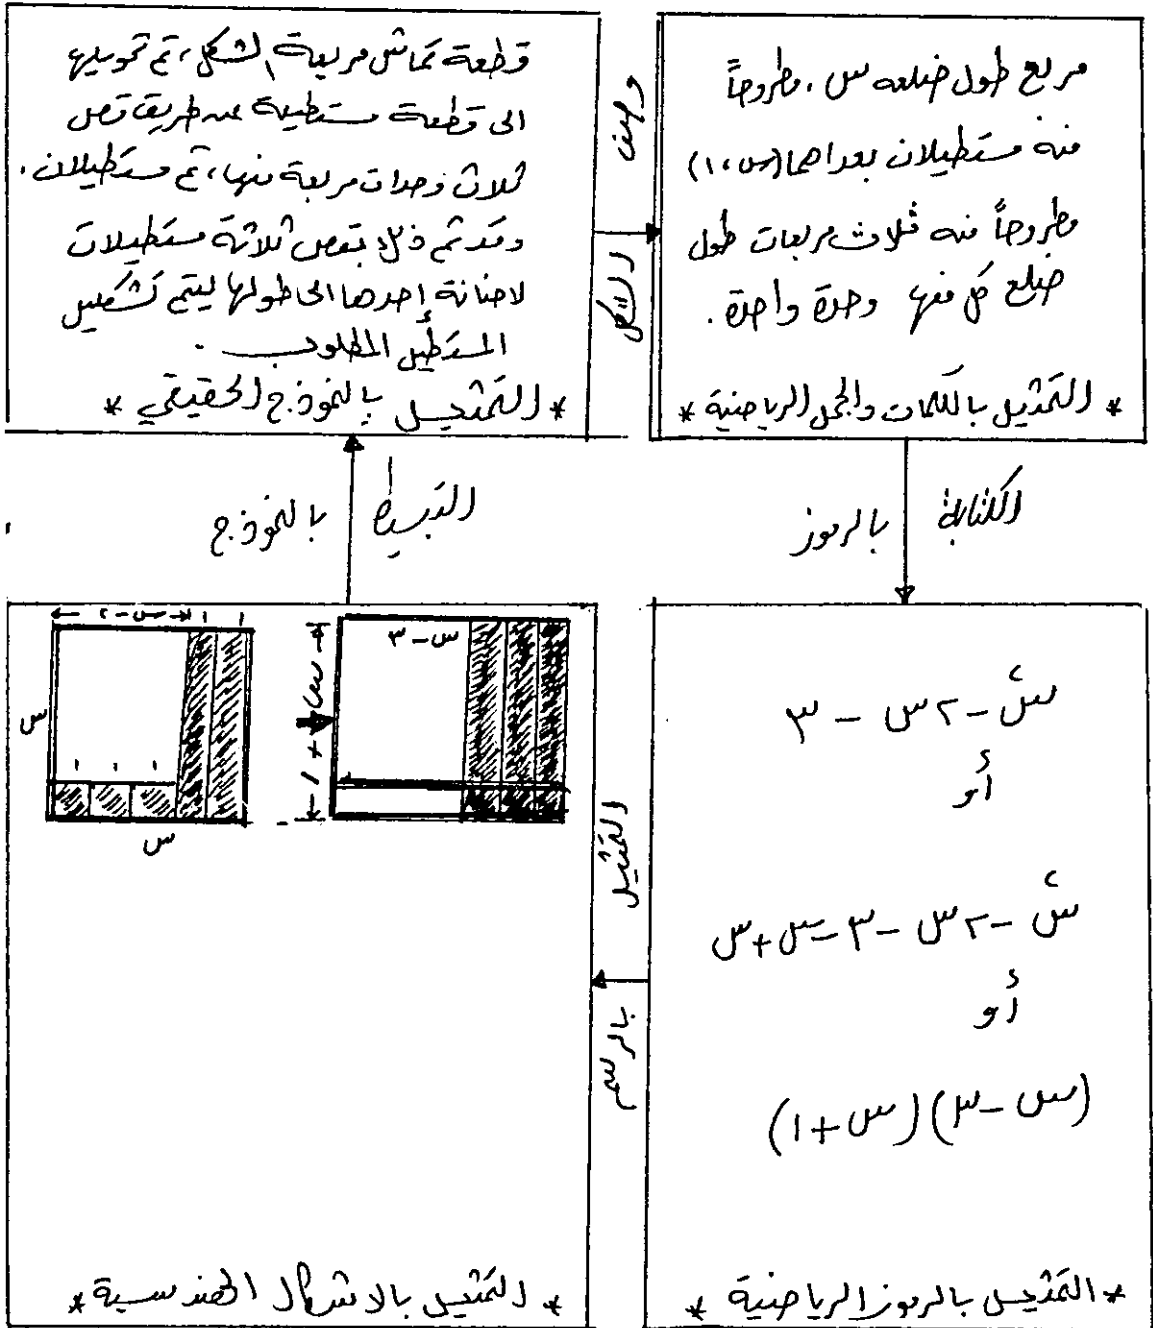 مربع طول ضلعه س ، مطروحاً
منه مستطيلان بعداهما (س، ١)
مطروحاً منه ثلاث مربعات طول
ضلع كل منها وحدة واحدة .
* التمثيل بالكلمات والجمل الرياضية *
وصف
الشكل
قطعة قماش مربعة الشكل ، تم تحويلها
الى قطعة مستطيلة عن طريق قص
ثلاث وحدات مربعة منها ، ثم مستطيلان .
وقد تم ذلك بقص ثلاثة مستطيلات
لاضافة إحدها الى طولها ليتم تشكيل
المستطيل المطلوب .
* التمثيل بالنموذج الحقيقي *
الكتابة بالرموز
التبسيط بالنموذج
س٢ - ٢س - ٣
أو
س٢ - ٢س - ٣ - س + س
أو
(س - ٣) (س + ١)
* التمثيل بالرموز الرياضية *
التمثيل
بالرسم
س - ٣
س + ١
س - ٢ ١ ١
س
١ ١ ١
س
* التمثيل بالاشكال الهندسية *